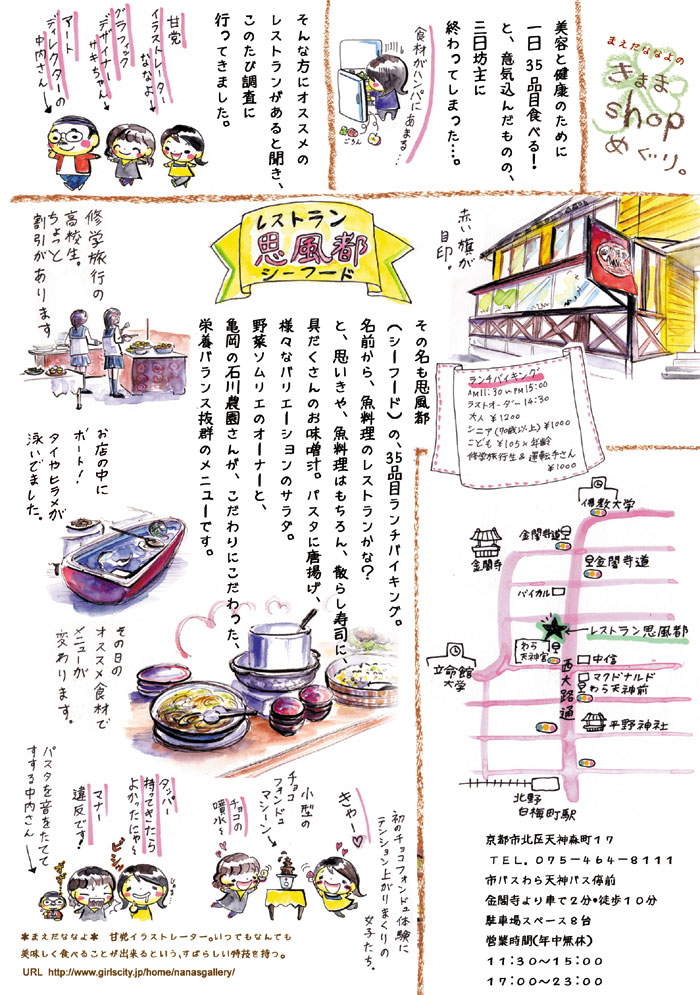 まえだななよの
きまま
shop
めぐり。
美容と健康のために
一日35品目食べる！
と、意気込んだものの、
三日坊主に
終わってしまった…。
食材がハンパにあまる…
ごろん
そんな方にオススメの
レストランがあると聞き、
このたび調査に
行ってきました。
甘党
イラストレーター
ななよ
グラフィック
デザイナー
サキちゃん
アート
ディレクターの
中内さん
赤い旗が
目印。
レストラン
思風都
シーフード
修学旅行の
高校生。
ちょっと
割引があります
その名も思風都
（シーフード）の、35品目ランチバイキング。
名前から、魚料理のレストランかな？
と、思いきや、魚料理はもちろん、散らし寿司に、
具だくさんのお味噌汁。パスタに唐揚げ、
様々なバリエーションのサラダ。
野菜ソムリエのオーナーと、
亀岡の石川農園さんが、こだわりにこだわった、
栄養バランス抜群のメニューです。
ランチバイキング
AM11:30〜PM15:00
ラストオーダー 14:30
大人 ¥1200
シニア(70歳以上)¥1000
こども ¥105×年齢
修学旅行生&運転手さん
¥1000
お店の中に
ボート！
タイやヒラメが
泳いでました。
その日の
オススメ食材で
メニューが
変わります。
佛教大学
金閣寺
金閣寺道
金閣寺道
バイカル
レストラン思風都
わら
天神宮
中信
立命館
大学
マクドナルド
わら天神前
西大路通
平野神社
北野
白梅町駅
初のチョコフォンデュ体験に
テンション上がりまくりの
女子たち。
きゃー
小型の
チョコ
フォンデュ
マシーン
チョコの
噴水〜
タッパ
持ってきたら
よかったにゃ〜
マナー
違反です！
パスタを音をたてて
すする中内さん
京都市北区天神森町17
TEL. 075-464-8111
市バスわら天神バス停前
金閣寺より車で2分・徒歩10分
駐車場スペース8台
営業時間(年中無休)
11:30〜15:00
17:00〜23:00
＊まえだななよ＊ 甘党イラストレーター。いつでもなんでも
美味しく食べることが出来るという、すばらしい特技を持つ。
URL http://www.girlscity.jp/home/nanasgallery/